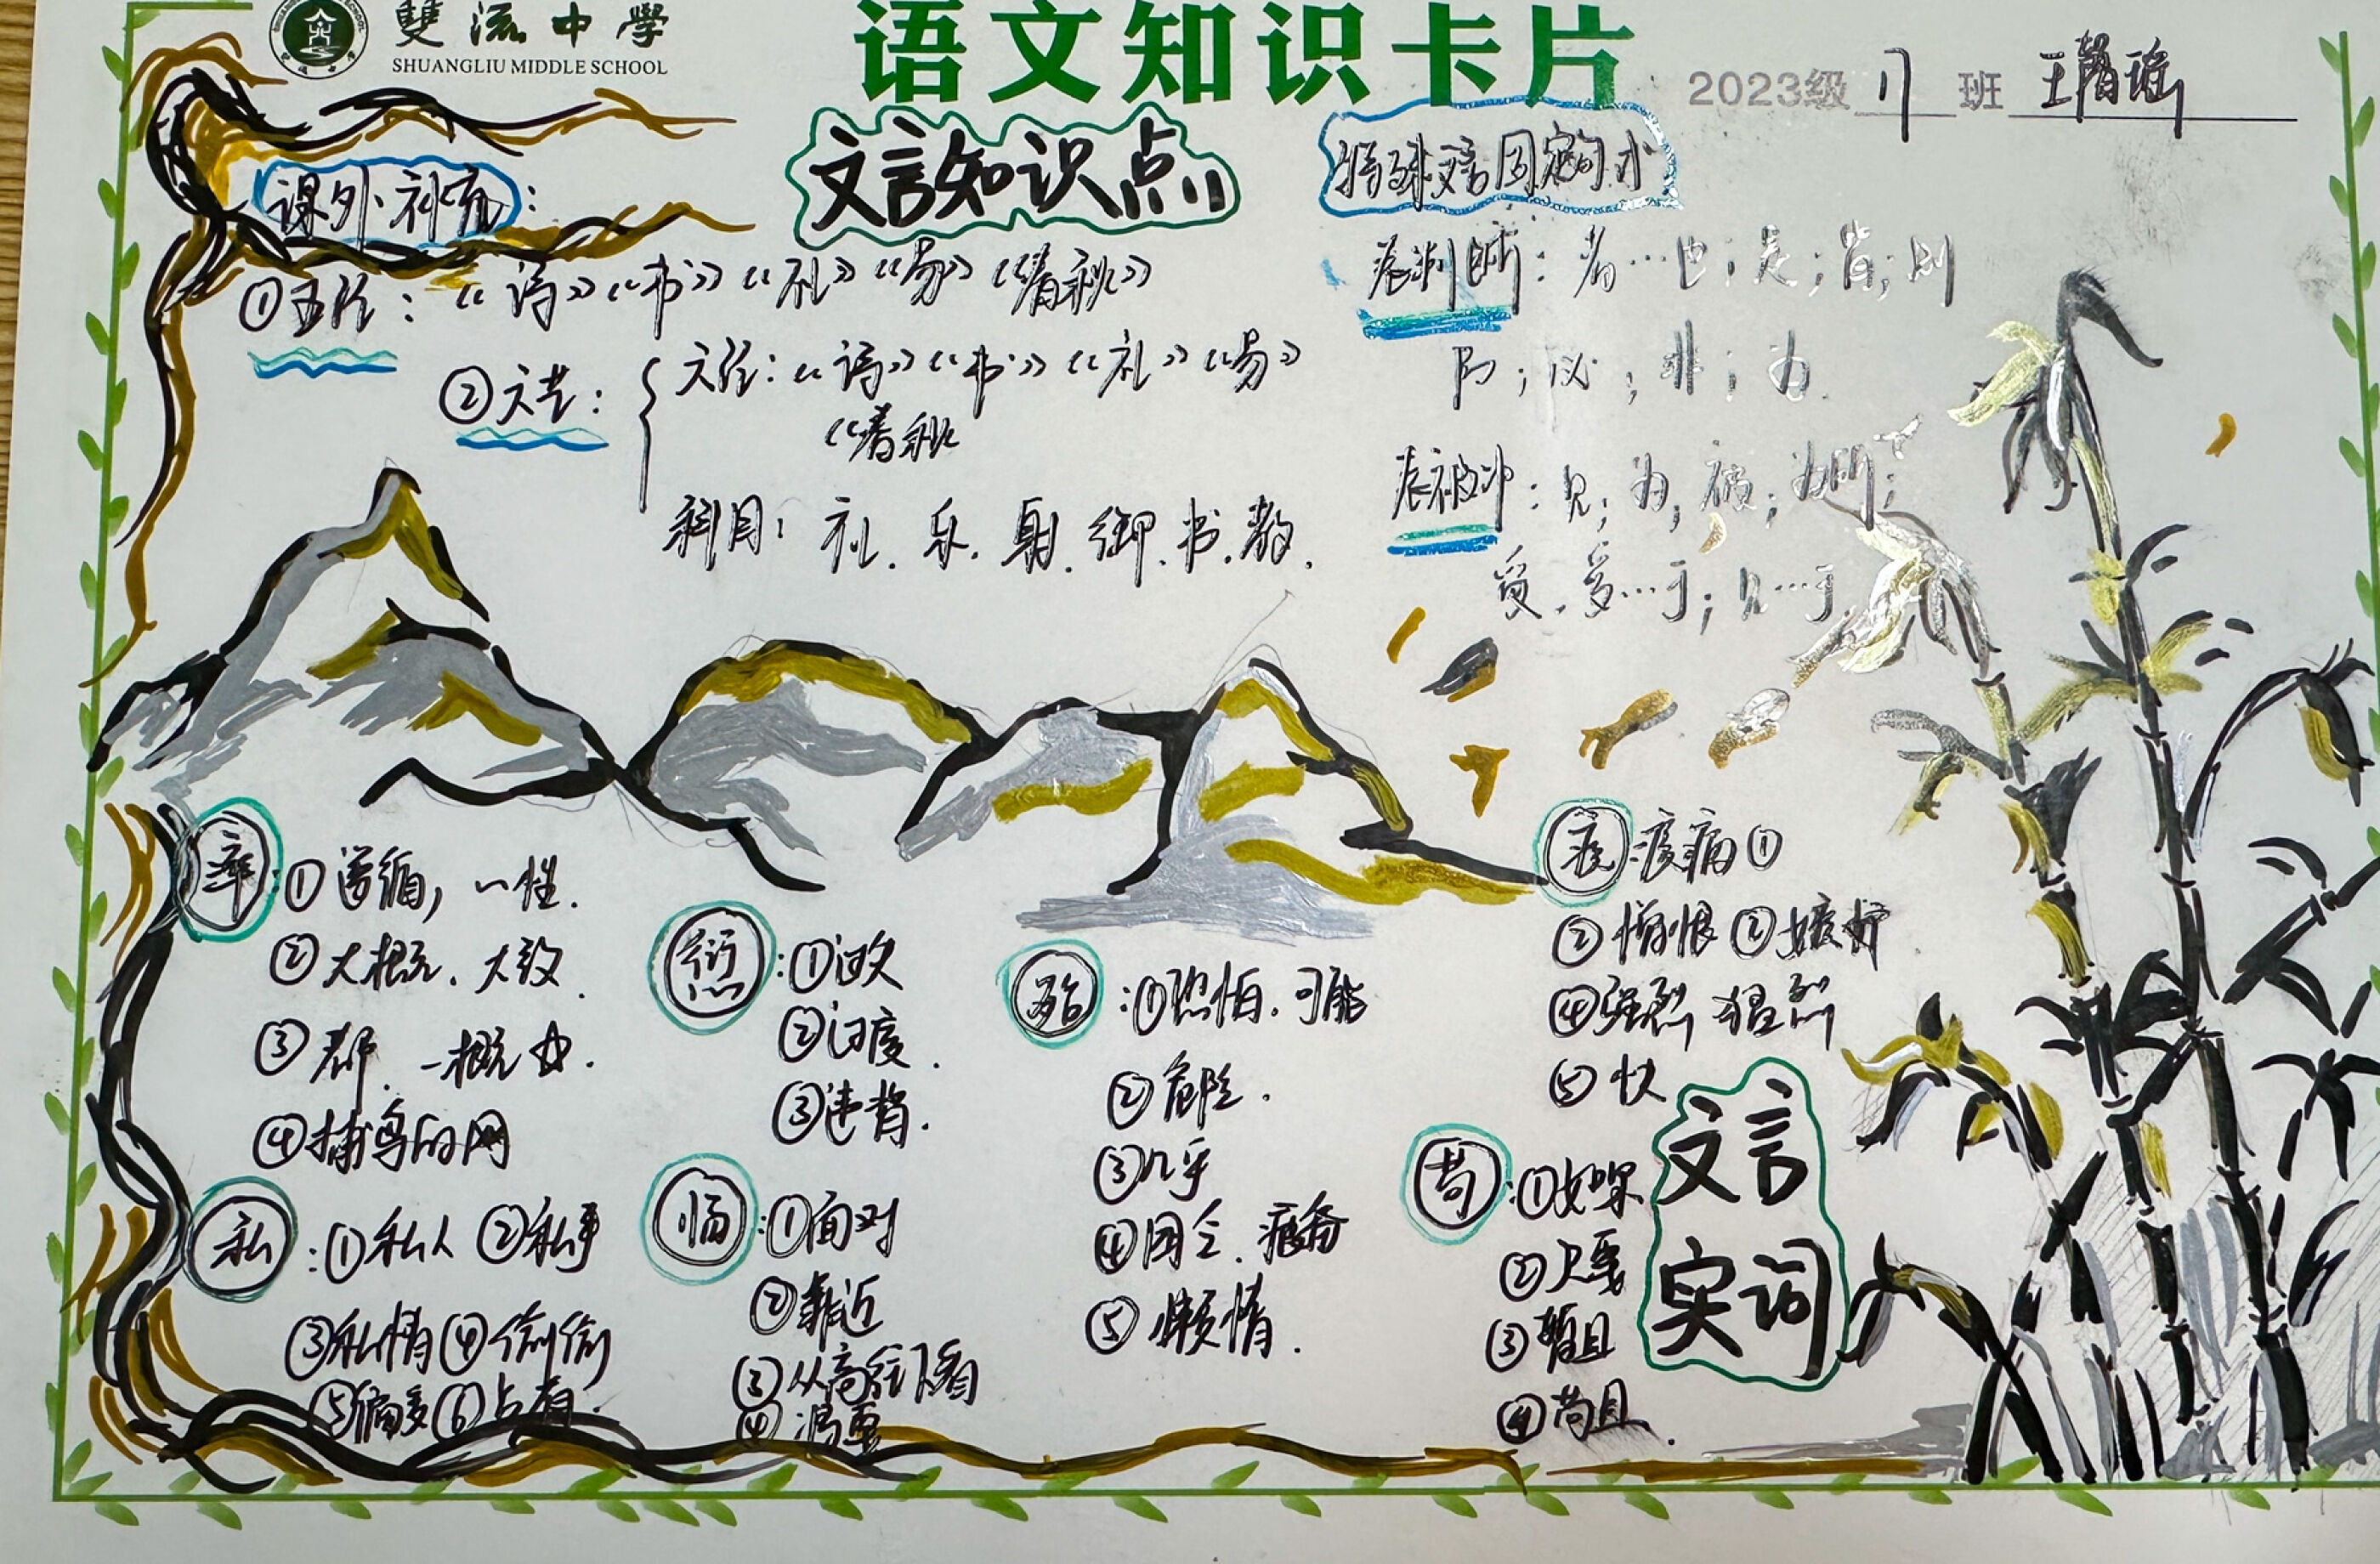 雙流中學
SHUANGLIU MIDDLE SCHOOL
语文知识卡片
2023级 17 班
文言知识点
课外补充：
①五经：《诗》《书》《礼》《易》《春秋》
②六艺：
六经：《诗》《书》《礼》《易》
《春秋
科目：礼、乐、射、御、书、数.
表判断：者…也；是；皆；则
乃；必；非；为
表被动：见；为；被；为所；
受、受…于；见…于
率 ①遵循，一性.
②大概、大致.
③都、一概.
④捕鸟的网
私：①私人 ②私事
③私情④偷偷
⑤偏爱⑥占有.
愆：①过失
②过度.
③违背.
临：①面对
②靠近
③从高往下看
④
殆：①恐怕、可能
②危险.
③几乎
④困乏、疲劳
⑤懒惰.
疾：疾病①
②憎恨②嫉妒
④强烈 猛烈
⑤快
苟：①如果
②只要
③暂且
④苟且.
文言
实词